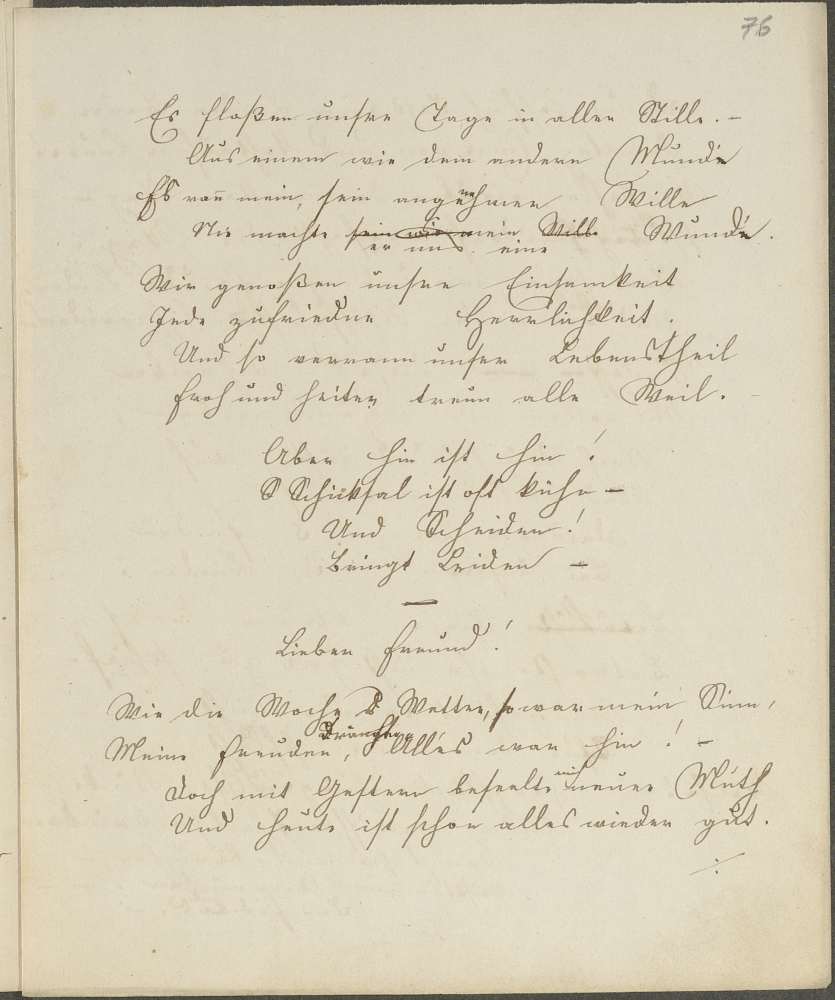 76
Es floßen unsre Tage in aller Stille. –
Aus einem wie dem andern Munde
Es rann mein, sein angenehmer Wille
Nie machte sein wie mein Wille Wunde.
er uns eine
Wir genoßen unsre Einsamkeit
Jede zufriedne Herrlichkeit.
Und so verrann unser Lebenstheil
Froh und heiter, treun alle Weil.
Aber hin ist hin!
S Schicksal ist oft kühn –
Und Scheiden!
Bringt Leiden –
–
Lieber Freund!
Wie die Woche s Wetter, so war mein Sinn,
Meine Freuden, Alles war hin! –
Doch mit Gestern beseelte mich neuer Muth
Und heute ist schon alles wieder gut.